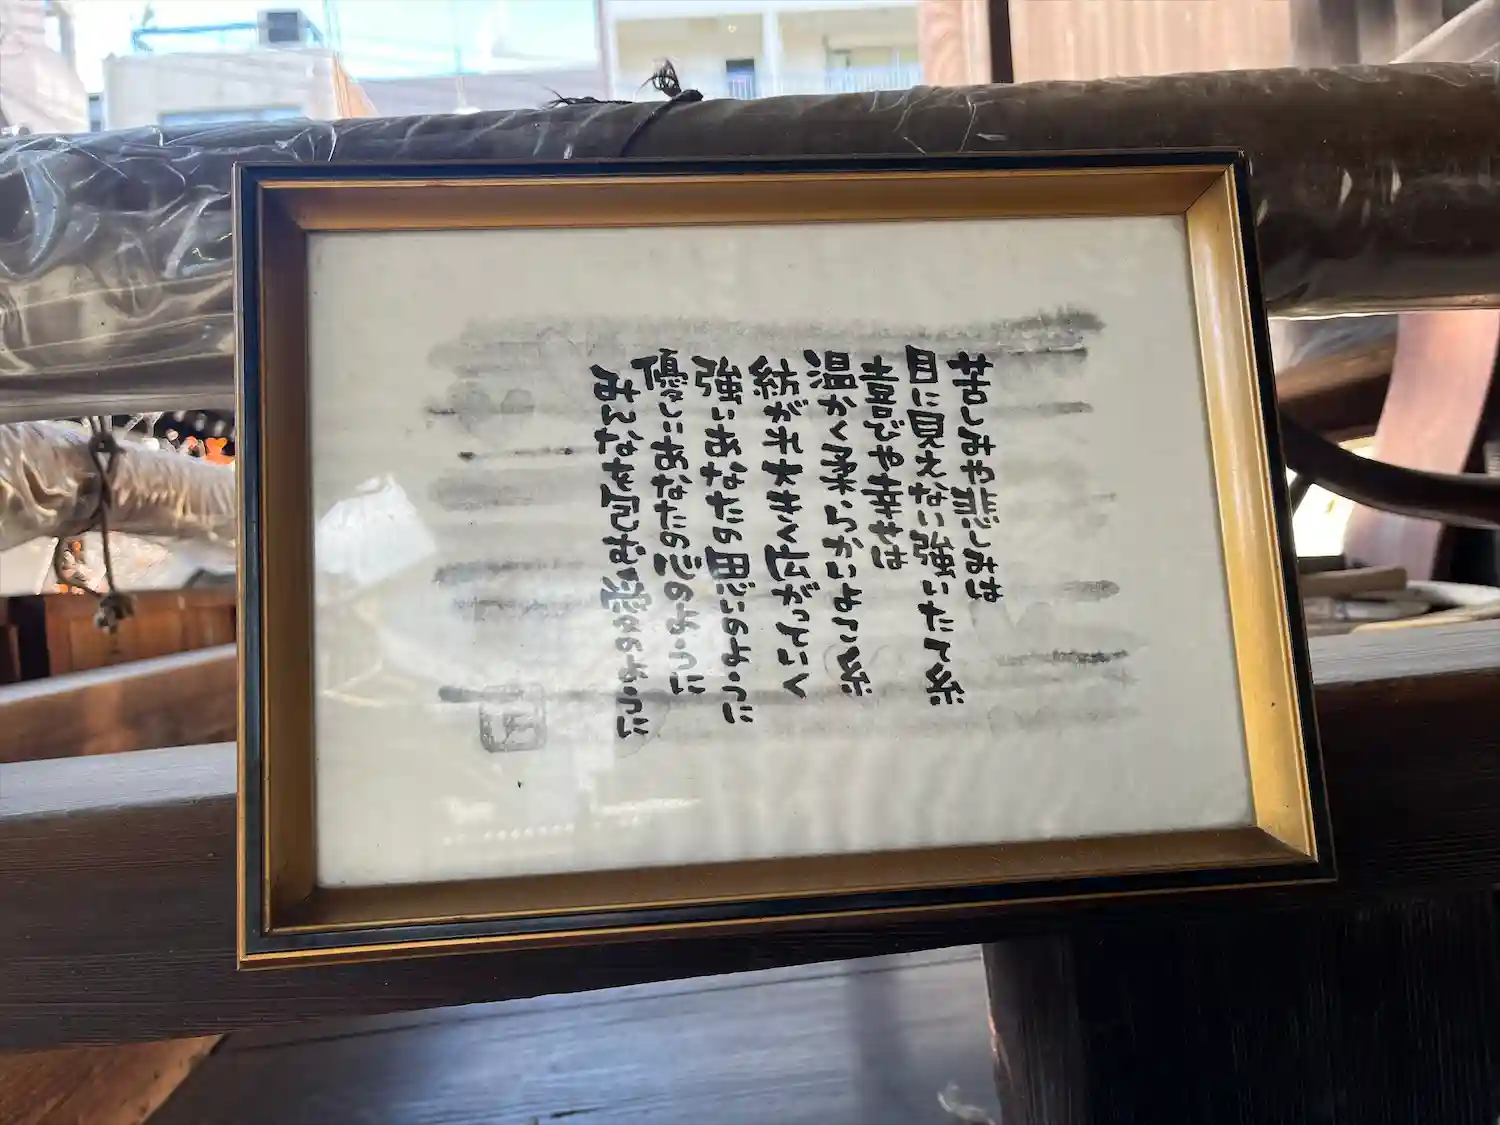 苦しみや悲しみは
目に見えない強いたて糸
喜びや幸せは
温かく柔らかいよこ糸
紡がれ大きく広がっていく
強いあなたの思いのように
優しいあなたの心のように
みんなを包む愛のように